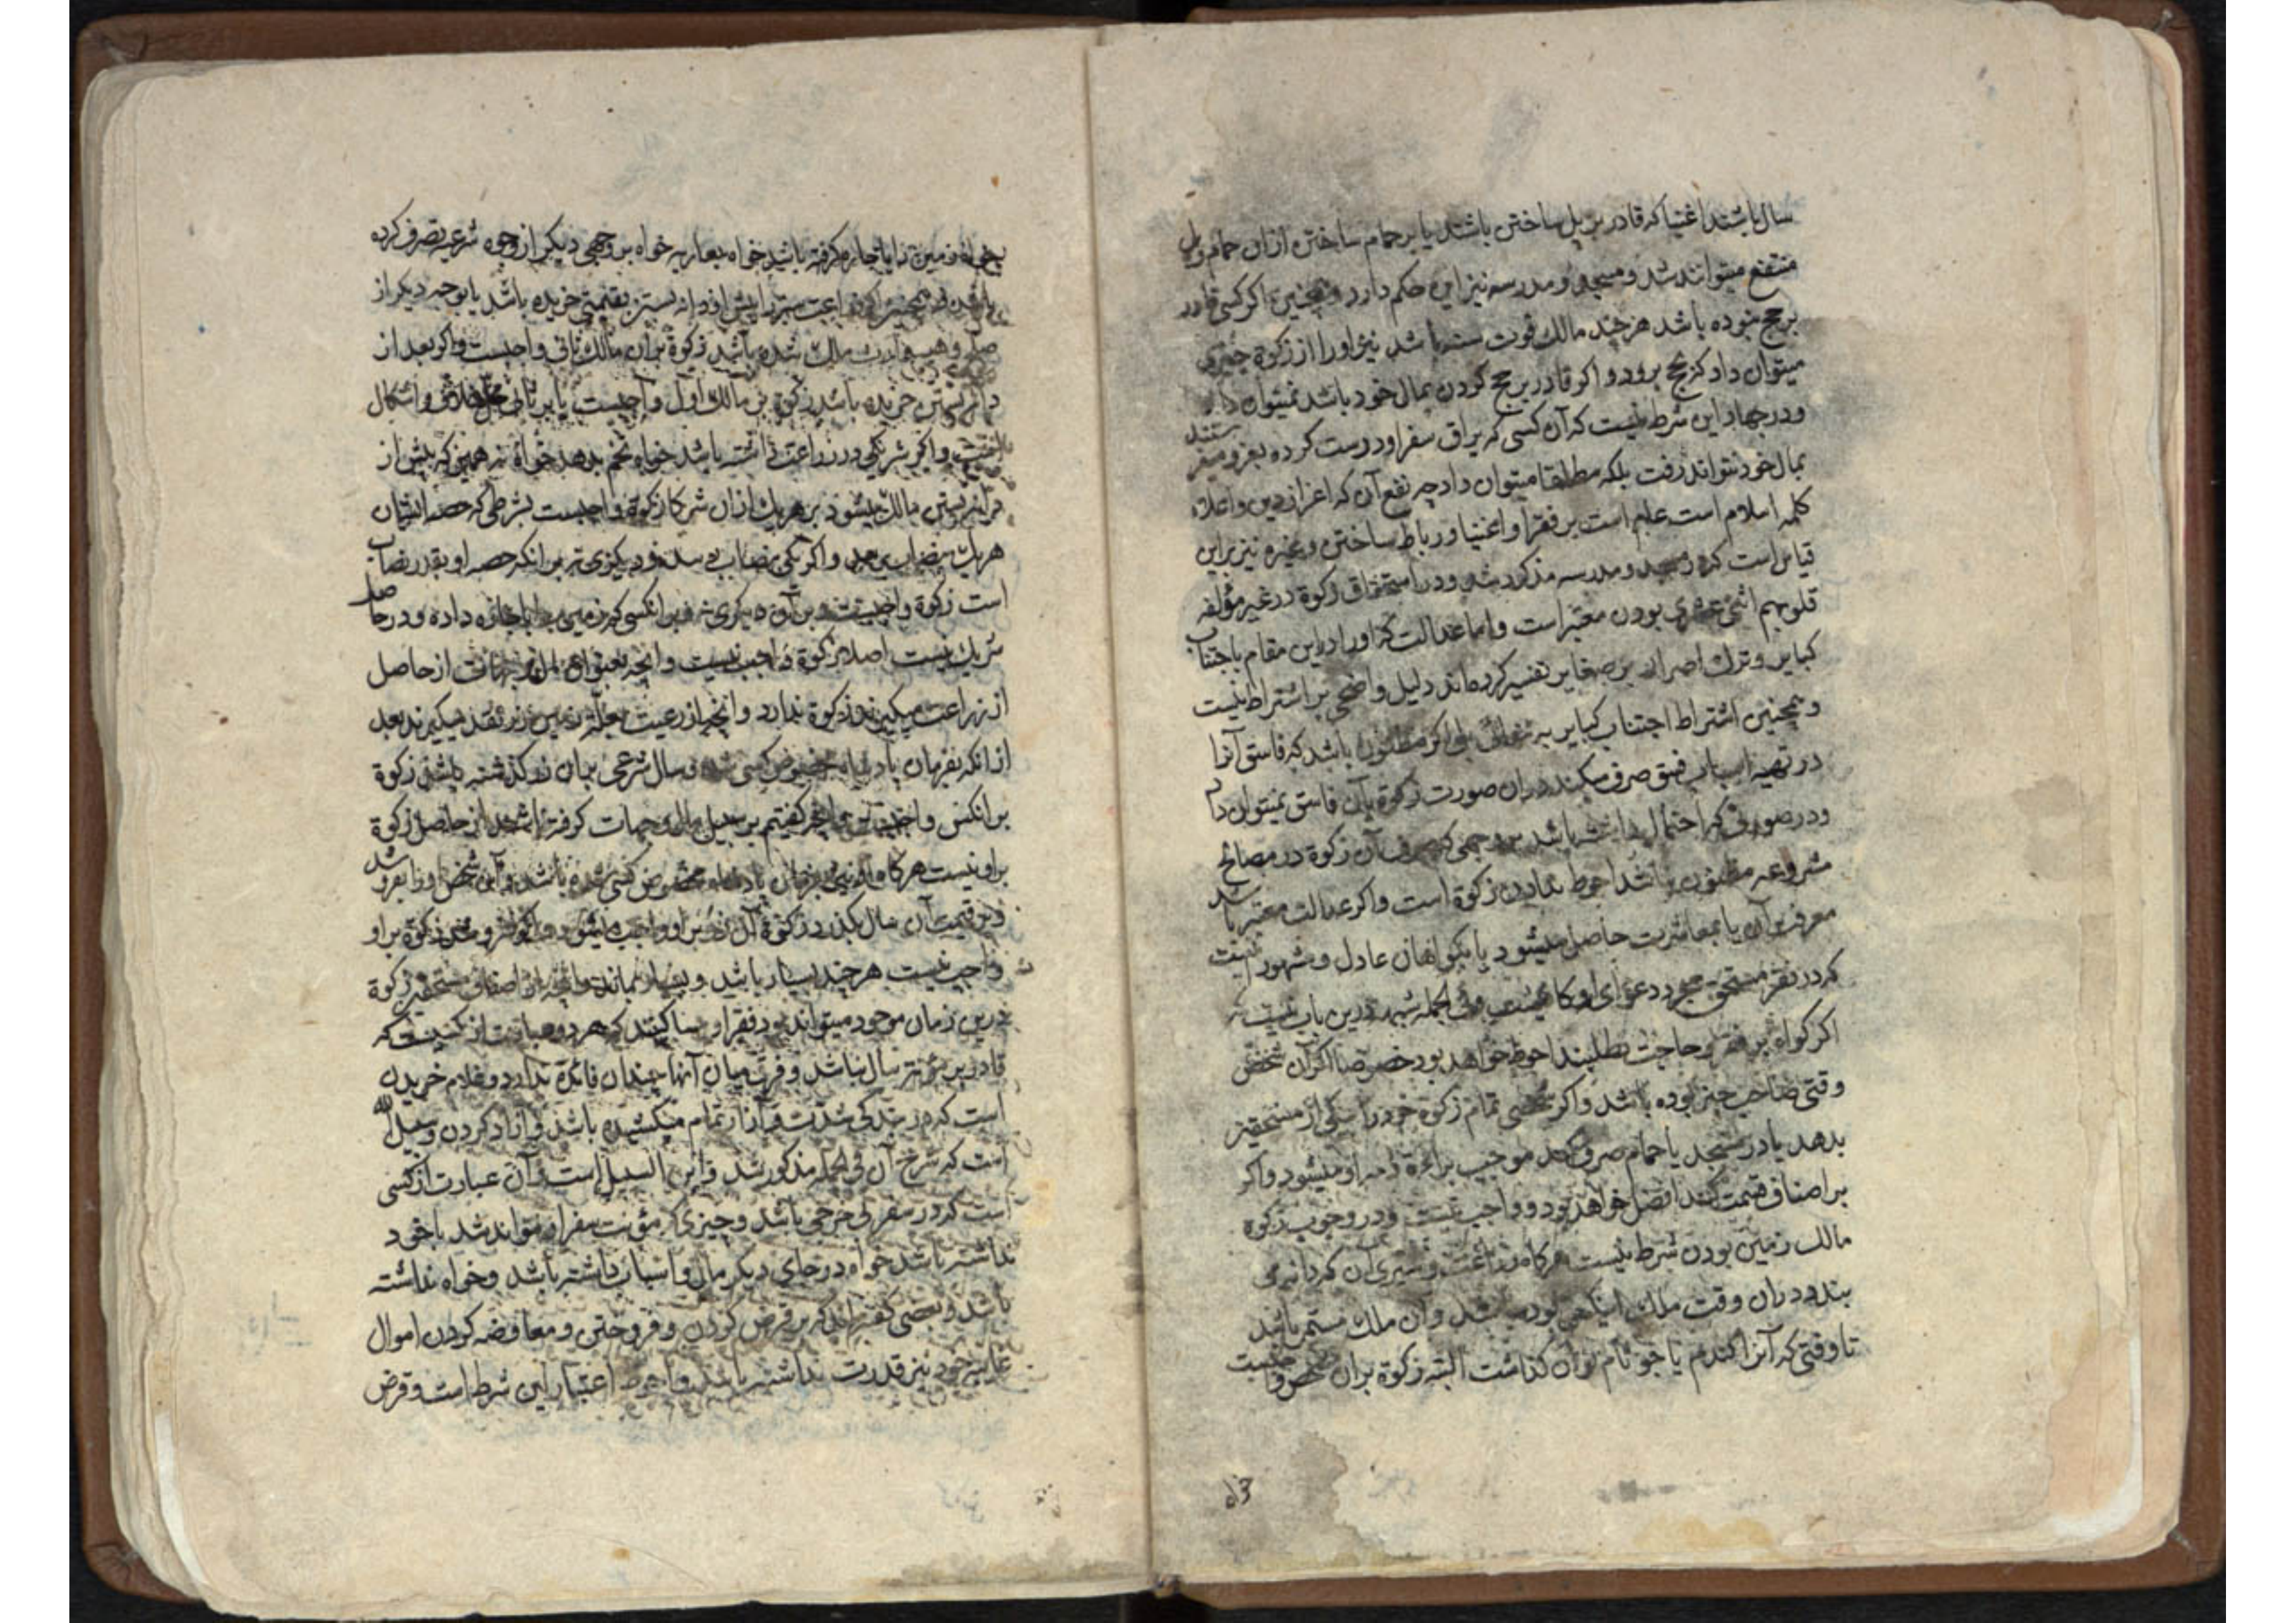 سال باشند اغنیا که قادر بر پل ساختن باشند یا بر حمام ساختن ازان حمام و پل
منتفع میتوانند شد و مسجد و مدرسه نیز این حکم دارد و همچنین اکر کسی قادر
بر حج نبوده باشد هر چند مالک قوت سنه باشد نیز او را از زکوة چیزی
میتوان داد که بحج برود و اکر قادر بر حج کردن بمال خود باشد نمیتوان داد
و در جهاد این شرط نیست که آن کسی که یراق سفر او درست کرده بغزو میفرستند
بمال خود نتواند رفت بلکه مطلقا میتوان داد چه نفع آن که اعزاز دین و اعلاء
کلمه اسلام است عام است بر فقرا و اغنیا و رباط ساختن و غیره نیز براین
قیاس است که در مسجد و مدرسه مذکور شد و در استحقاق زکوة در غیر مؤلفه
قلوبهم اثنی عشری بودن معتبر است و اما عدالت که او را دراین مقام باجتناب
کبایر و ترک اصرار بر صغایر تفسیر کرده‌اند دلیل واضحی بر اشتراط نیست
و همچنین اشتراط اجتناب کبایر به تنهائی بلی اکر مظنون باشد که فاسق آنرا
در تهیه اسباب فسق صرف میکند دران صورت زکوة بآن فاسق نمیتوان داد
و در صورتی که احتمال داشته باشد بر وجهی که صرف آن زکوة در مصالح
مشروعه مظنون باشد احوط ندادن زکوة است و اکر عدالت معتبر باشد
معرفت آن یا بمعاشرت حاصل میشود یا بکواهان عادل و مشهور اینست
که در فقر مستحق مجرد دعوای او کافیست و فی الجمله شبهه درین باب نیست
اکر کواه بر فقر و حاجت بطلبند احوط خواهد بود خصوصا اکر آن شخص
وقتی صاحب چیز بوده باشد و اکر شخصی تمام زکوة خود را بیکی از مستحقین
بدهد یا در مسجد یا حمام صرف کند موجب براءة ذمه او میشود و اکر
بر اصناف قسمت کند افضل خواهد بود و واجب نیست و در وجوب زکوة
مالک زمین بودن شرط نیست هرکاه زراعت و سبزی آن که دانه می
بندد دران وقت ملک اینکس بوده باشد و ان ملک مستمر باشد
تا وقتی که آنرا کندم یا جو نام توان کذاشت البته زکوة بران شخص واجبست
خواه
خواه زمین را باجاره کرفته باشد خواه بعاریه خواه بر وجهی دیکر از وجوه شرعیه تصرف کرده
باشد و همچنین اکر زراعت سبز را پیش از دانه بستن بقیمتی خریده باشد یا بوجه دیکر از
صلح و هبه مالک شده باشد زکوة بران مالک ثانی واجبست و اکر بعد از
دانه بستن خریده باشد زکوة بر مالک اول واجبست یا بر ثانی محل خلاف و اشکال
است و اکر شریکی در زراعت داشته باشد خواه تخم بدهد خواه نه همین که پیش از
دانه بستن مالک میشود بر هریک ازان شرکا زکوة واجبست بشرطی که حصه ایشان
هریک بنصاب برسد و اکر یکی بنصاب برسد و دیکری نه بر انکه حصه او بقدر نصاب
است زکوة واجبست و بر آن دیکری نه و بر انکسی که زمین را باجاره داده و در حاصل
شریک نیست اصلا زکوة واجب نیست و انچه بعنوان مال و جهات از حاصل
از زراعت میکیرند زکوة ندارد و انچه از رعیت بعلت زمین زر نقد میکیرند بعد
از انکه بفرمان پادشاه مخصوص کسی شده و سال شرعی بران زر کذشته باشد زکوة
بر انکس واجبست و انچه کفتیم بر سبیل مال و جهات کرفته باشند از حاصل زکوة
براو نیست هرکاه بفرمان پادشاه مخصوص کسی شده باشد و آن شخص او را بفروشد
و بر قیمت آن سال بکذرد زکوة آن زر بر او واجب میشود و اکر نفروشد زکوة بر او
واجب نیست هر چند بسیار باشد و سالها بماند و انچه از اصناف مستحقین زکوة
درین زمان موجود میتواند بود فقرا و مساکینند که هر دو عبارت از کسیست که
قادر بر مؤنت سال نباشد و فرق میان آنها چندان فائده ندارد و غلام خریدن
است که در بندکی شدت و آزار تمام میکشیده باشد و ازاد کردن و سبیل الله
است که شرح آن فی الجمله مذکور شد و ابن السبیل است و آن عبارت از کسی
است که در سفر بی خرجی باشد و چیزی که مؤنت سفر او تواند شد با خود
نداشته باشد خواه در جای دیکر مال و اسباب داشته باشد و خواه نداشته
باشد و بعضی کفته‌اند که بر قرض کردن و فروختن و معاوضه کردن اموال
غایبه خود نیز قدرت نداشته باشد و احوط اعتبار این شرط است و قرض